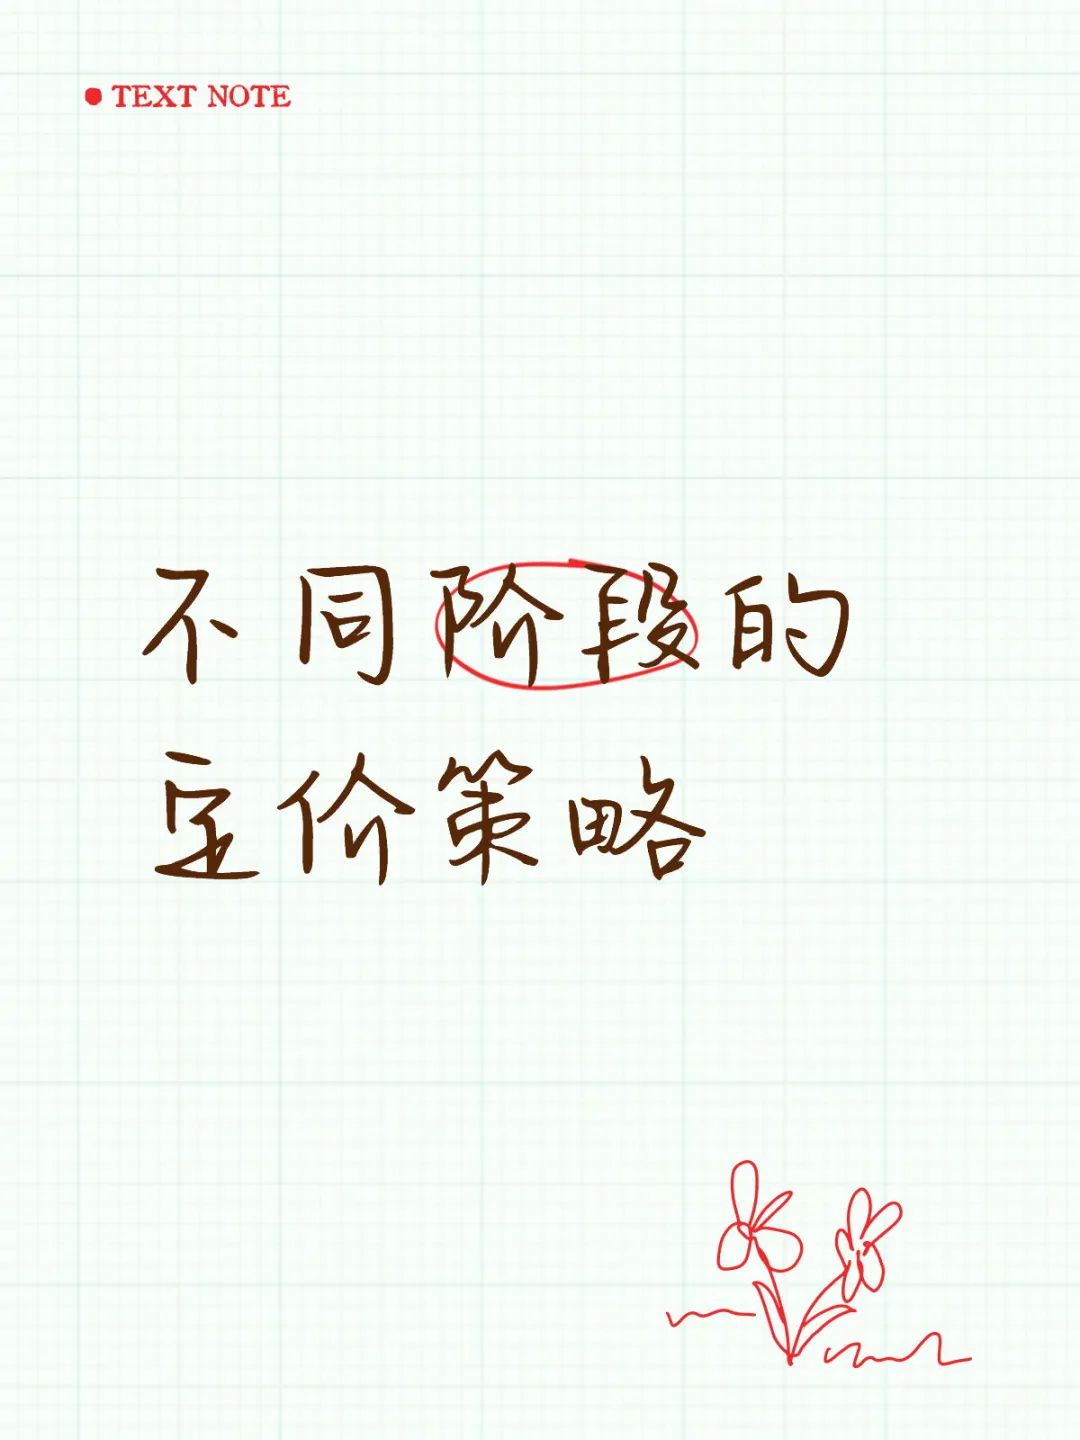 TEXT NOTE
不同阶段的
定价策略